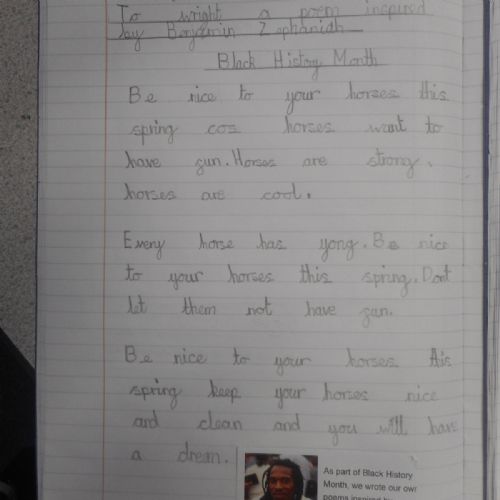 To wright a poem inspired
by Benjamin Zephaniah
Black History Month
Be nice to your horses this
spring cos horses want to
have gun. Horses are strong.
horses are cool.
Every horse has yong. Be nice
to your horses this spring. Dont
let them not have gun.
Be nice to your horses this
spring keep your horses nice
and clean and you will have
a dream.
As part of Black History
Month, we wrote our own
poems inspired by